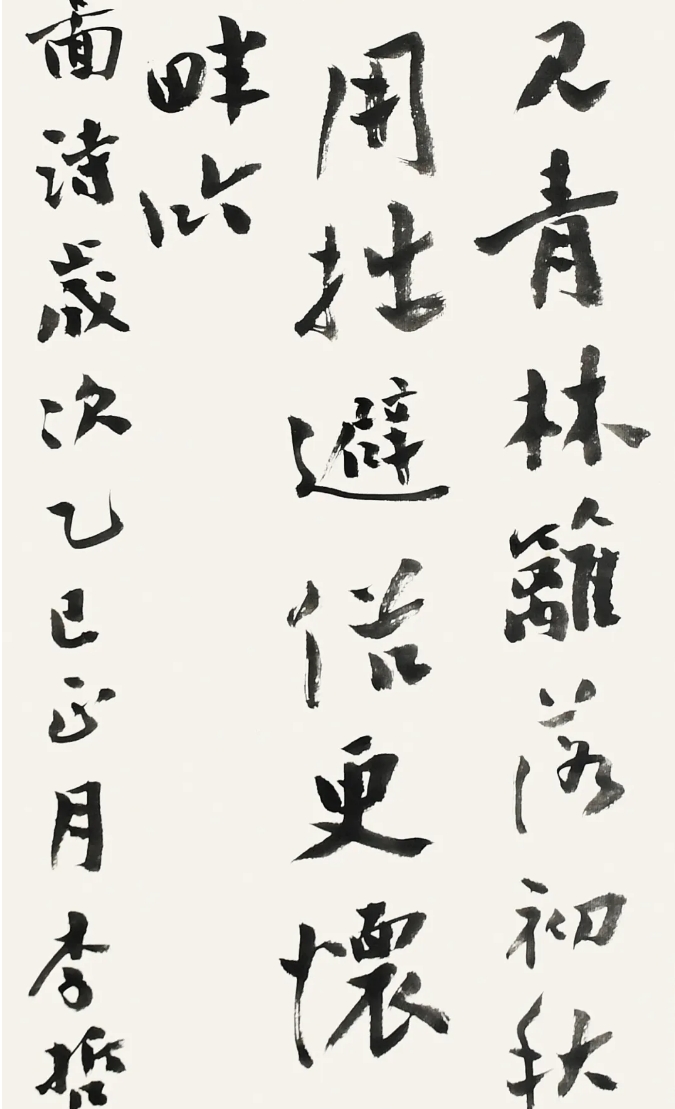 见青林籬落初秋
用拙避俗更懷
畔以
詩歲次乙巳正月李哲